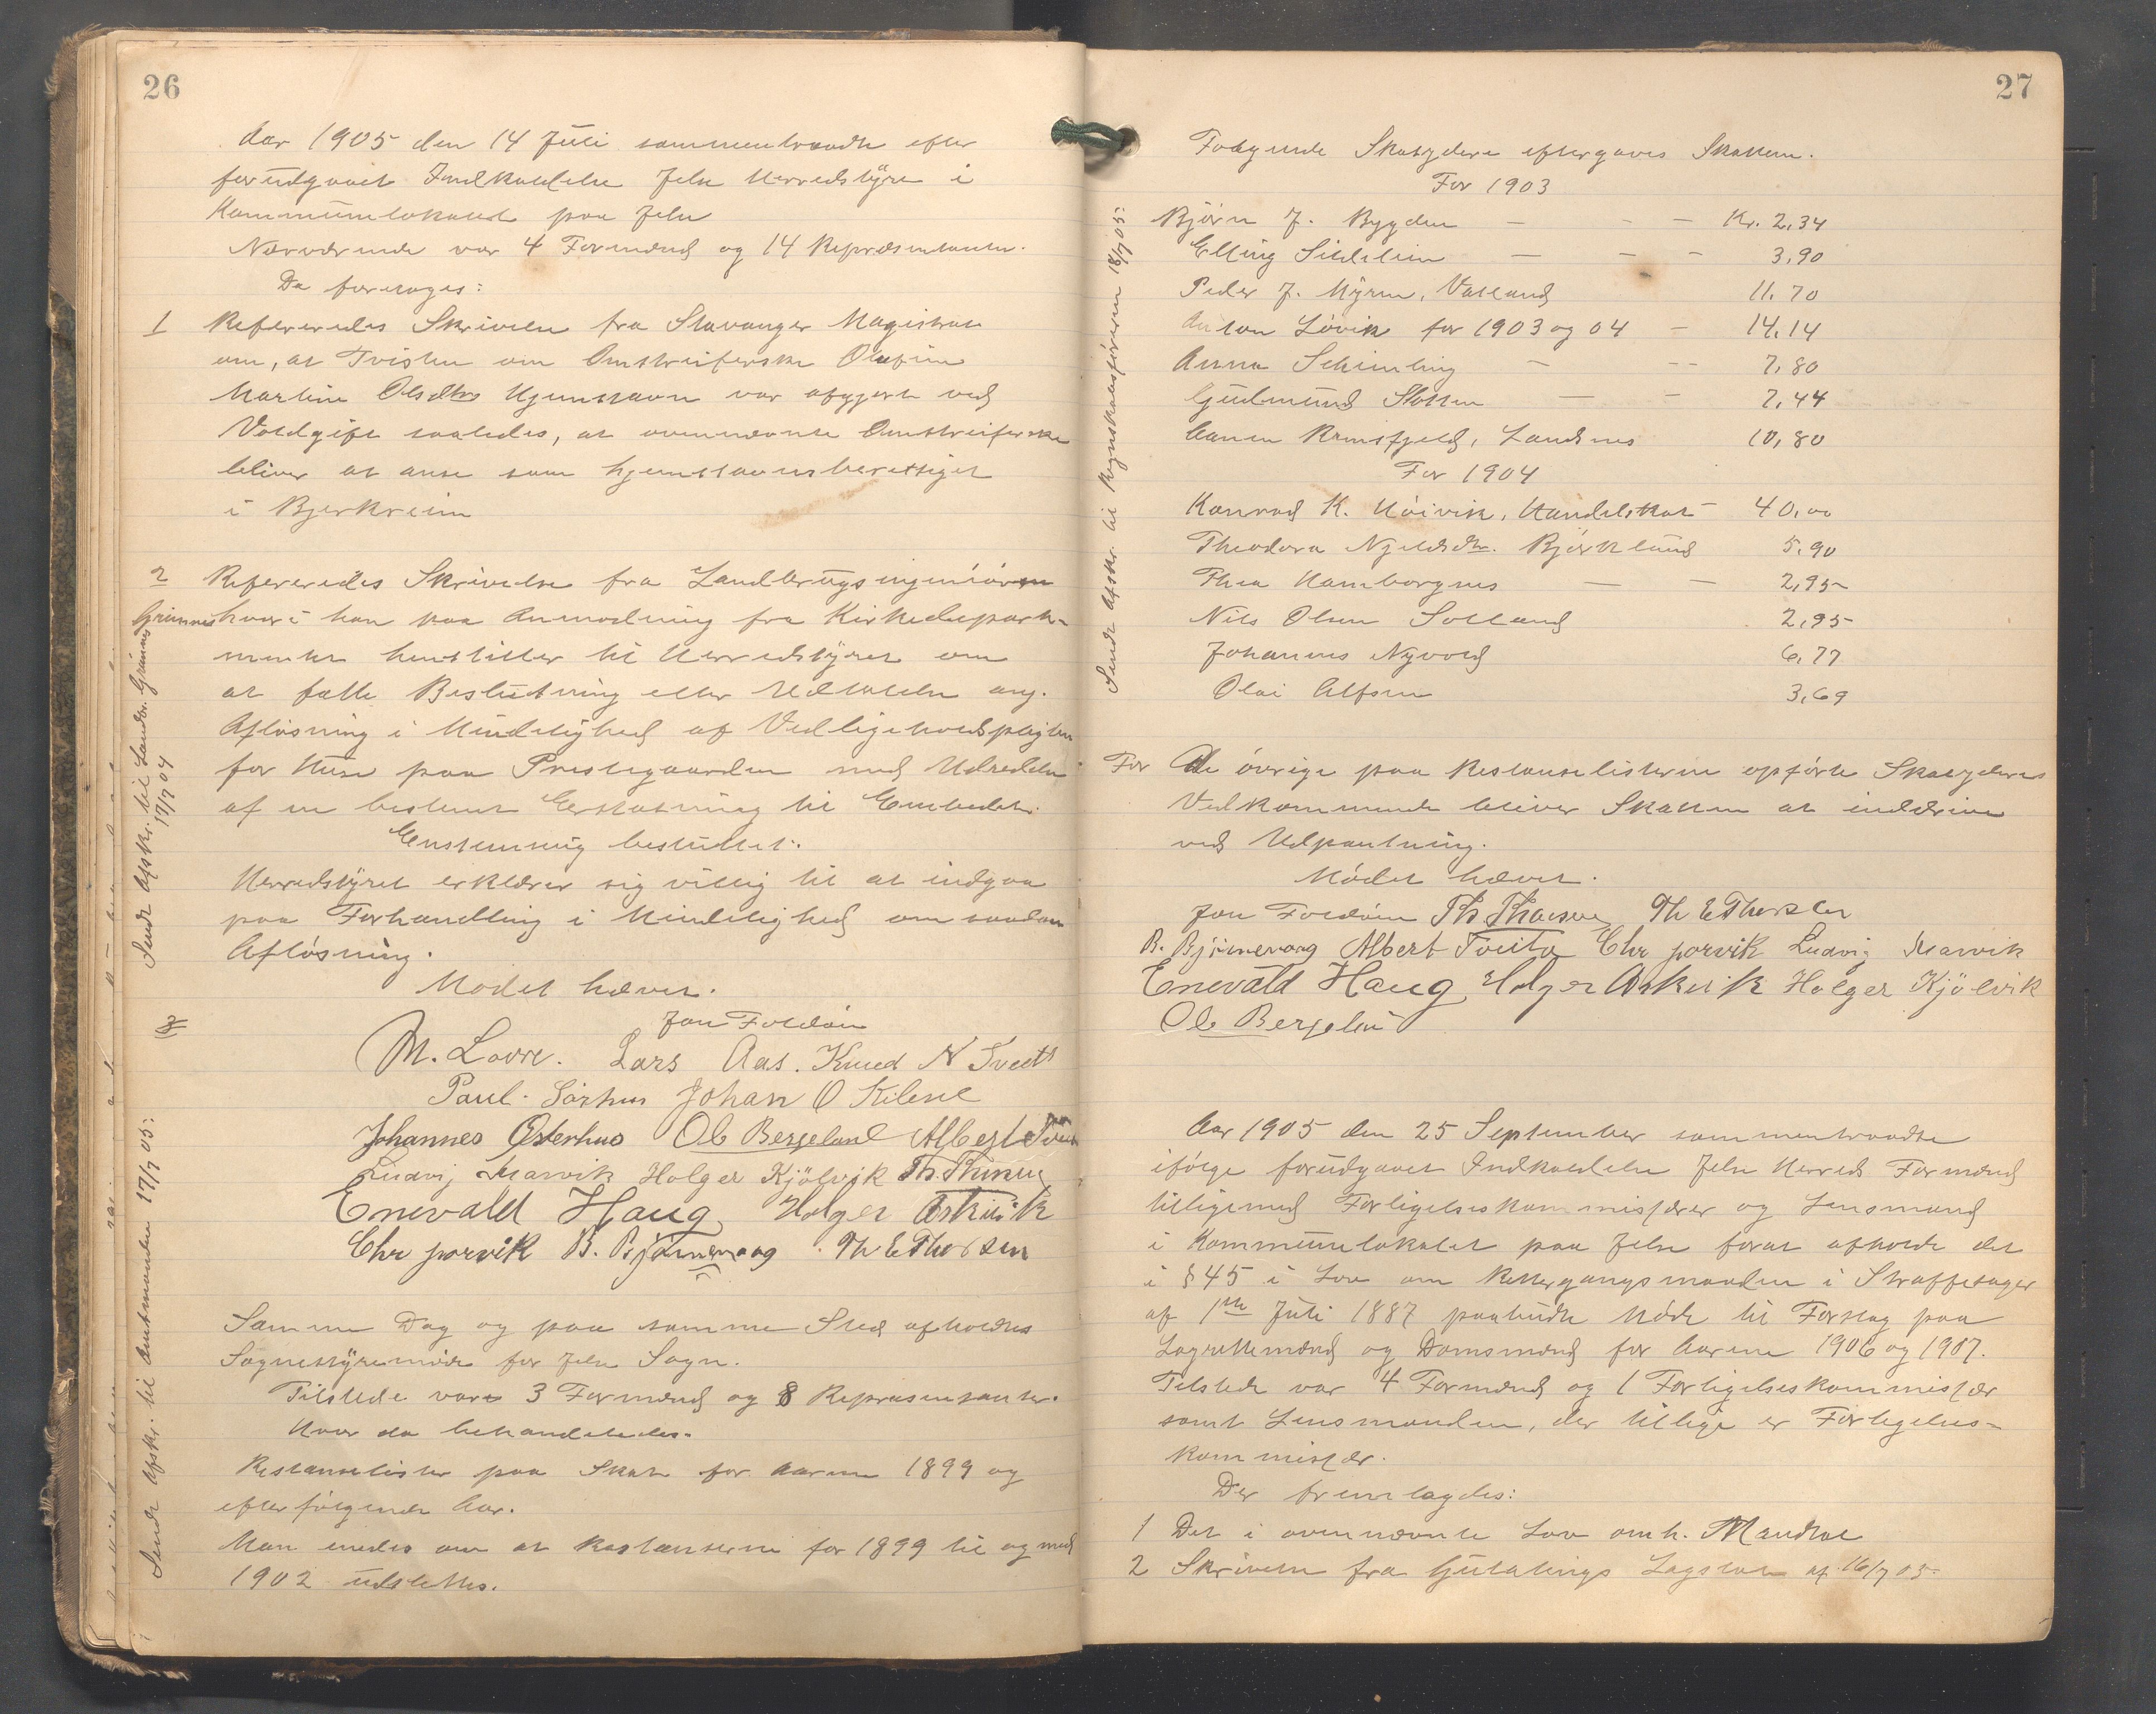 26
Aar 1905 den 14 Juli sammentraadte efter
forudgaaet Indkaldelse Jelse Herredstyre i
Kommunelokalet paa Jelse
Nærværende var 4 Formænd og 14 Repræsentanter.
Da foretoges:
1 Refereredes Skrivelse fra Stavanger Magistrat
om, at Tvisten om Omstreiferske Olufine
Martine Olsdtrs Hjemstavn var afgjort ved
Voldgift saaledes, at ovennævnte Omstreiferske
bliver at anse som hjemstavnsberettiget
i Bjerkreim
2 Refereredes Skrivelse fra Landbrugsingeniøren
Grimnes hvori han paa Anmodning fra Kirkedepart-
mentet henstiller til Herredstyret om
at fatte Beslutning eller Udtalelse ang.
Afløsning i Mindelighed af Vedligeholdspligten
for Huse paa Prestegaarden med Udredelse
af en bestemt Erstatning til Embedet.
Enstemmig besluttet:
Herredstyret erklærer sig villig til at indgaa
paa Forhandling i Mindelighed om saadan
Afløsning.
Mødet hævet.
Jon Foldøin
M. Lovre. Lars Aas. Knud N Tveit
Paul Sørhus Johan O Kilene
Johannes Østerhus Ole Bergeland Albert Tveita
Ludvig Marvik Holger Kjølvik
Enevald Haug Holger Askvik
Chr jorvik B. Bjørnevaag Th E Thorsen
Samme Dag og paa samme Sted afholdtes
Sognestyremøde for Jelse Sogn.
Tilstede vare 3 Formænd og 8 Repræsentanter.
Hvor da behandledes.
Restanselister paa Skat for Aarene 1899 og
efterfølgende Aar.
Man enedes om at Restanserne for 1899 til og med
1902 udslettes.
Sendt Afskr. til Landbr. Grimnes
17/7 04
Sendt Afskr. til Amtmanden 17/7 05:
27
Følgende Skatydere eftergaves Skatten.
For 1903
Bjørn J. Bygden — - — Kr. 2,34
Elling Sildelien — - - 3,90
Peder J. Myrne, Vatland 11,70
Anton Løvik for 1903 og 04 — 14,14
Anna Scheimling — -- 7,80
Gudmund Slotten — - 7,44
Aanen Ramsfjeld, Landsnes 10,80
For 1904
Konrad K. Høivik, Handelskat — 40,00
Theodora Njeldsdtr. Bjørklund 5,90
Thea Hamborgnes — — 2,95
Nils Olsen Solland 2,95
Johannes Nyvold 6,77
Olai Alfsen 3,69
For de øvrige paa Restanselisterne opførte Skatyderes
Vedkommende bliver Skatten at inddrive
ved Udpantning.
Mødet hævet.
Jon Foldøin Th E Thorsen
B. Bjørnevaag Albert Tveita Chr jorvik Ludvig Marvik
Enevald Haug Holger Askvik Holger Kjølvik
Ole Bergeland
Aar 1905 den 25 September sammentraadte
ifølge forudgaaet Indkaldelse Jelse Herreds Formænd
tilligemed Forligelseskommissærer og Lensmand
i Kommunelokalet paa Jelse forat afholde det
i § 45 i Lov om Rettergangsmaaden i Straffesager
af 1ste Juli 1887 paabudte Møde til Forslag paa
Lagrettemænd og Domsmænd for Aarene 1906 og 1907.
Tilstede var 4 Formænd og 1 Forligelseskommissær
samt Lensmanden, der tillige er Forligelses-
kommissær.
Der fremlagdes:
1 Det i ovennævnte Lov omh. Mandtal
2 Skrivelse fra Gulatings Lagstol af 16/7 05.
Sendt Afskr. til Regnskabsføreren 18/7 05: